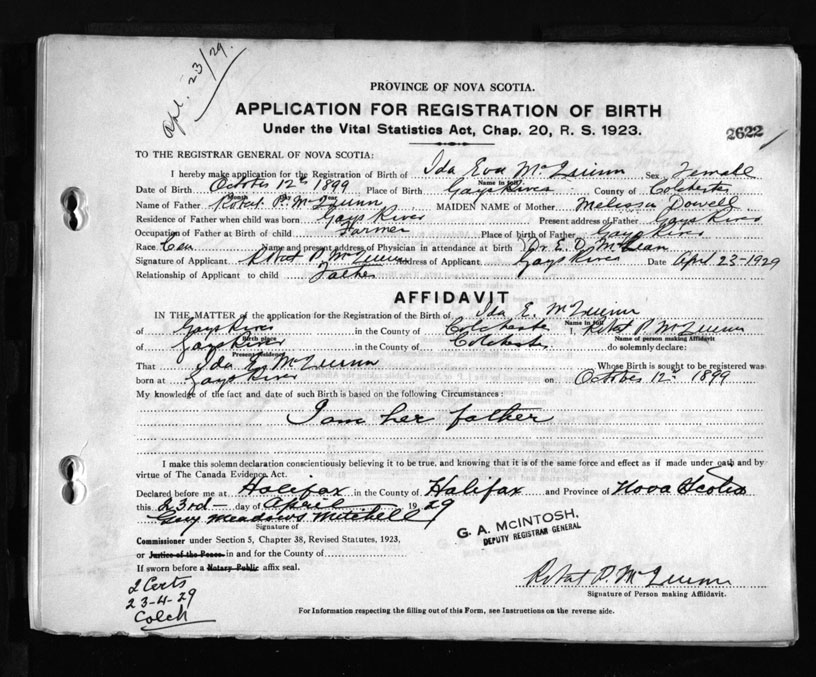 Apl. 23/29.
PROVINCE OF NOVA SCOTIA.
APPLICATION FOR REGISTRATION OF BIRTH
Under the Vital Statistics Act, Chap. 20, R. S. 1923.
2622
TO THE REGISTRAR GENERAL OF NOVA SCOTIA:
I hereby make application for the Registration of Birth of Ida Eva McQuinn Sex Female
Name in full
Date of Birth October 12th 1899 Place of Birth Gays River County of Colchester
Month Day Year
Name of Father Robert P. McQuinn MAIDEN NAME of Mother, Melissa Dowell
Residence of Father when child was born Gays River Present address of Father Gays River
Occupation of Father at Birth of child Farmer Place of birth of Father Gays River
Race Name and present address of Physician in attendance at birth Dr. E. D. McLean
Signature of Applicant Robert P. McQuinn Address of Applicant Gays River Date April 23-1929
Relationship of Applicant to child Father
AFFIDAVIT
IN THE MATTER of the application for the Registration of the Birth of Ida E. McQuinn
Name in full
of Gays River in the County of Colchester I, Robert P. McQuinn
Birth place Name of person making Affidavit
of Gays River in the County of Colchester do solemnly declare:
Present residence
That Ida E. McQuinn Whose Birth is sought to be registered was
born at Gays River on October 12th 1899
My knowledge of the fact and date of such Birth is based on the following Circumstances:
I am her father
I make this solemn declaration conscientiously believing it to be true, and knowing that it is of the same force and effect as if made under oath and by
virtue of The Canada Evidence Act.
Declared before me at Halifax in the County of Halifax and Province of Nova Scotia
this 23rd day of April 1929
Guy Meadows Mitchell
Signature of
G. A. McINTOSH,
DEPUTY REGISTRAR GENERAL
Commissioner under Section 5, Chapter 38, Revised Statutes, 1923,
or Justice of the Peace in and for the County of
If sworn before a Notary Public affix seal.
2 Certs
23-4-29
Colch
Robert P. McQuinn
Signature of Person making Affidavit.
For Information respecting the filling out of this Form, see Instructions on the reverse side.